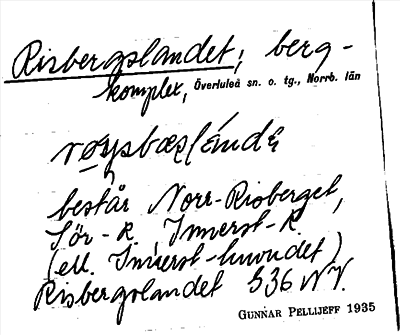 Risbergslandet, berg-
komplex, Överluleå sn. o. tg., Norrb. län
består Norr-Risberget,
Sör-R. Innerst-R.
(ell. Innerst-huvudet)
Risbergslandet S36 NV.
GUNNAR PELLIJEFF 1935